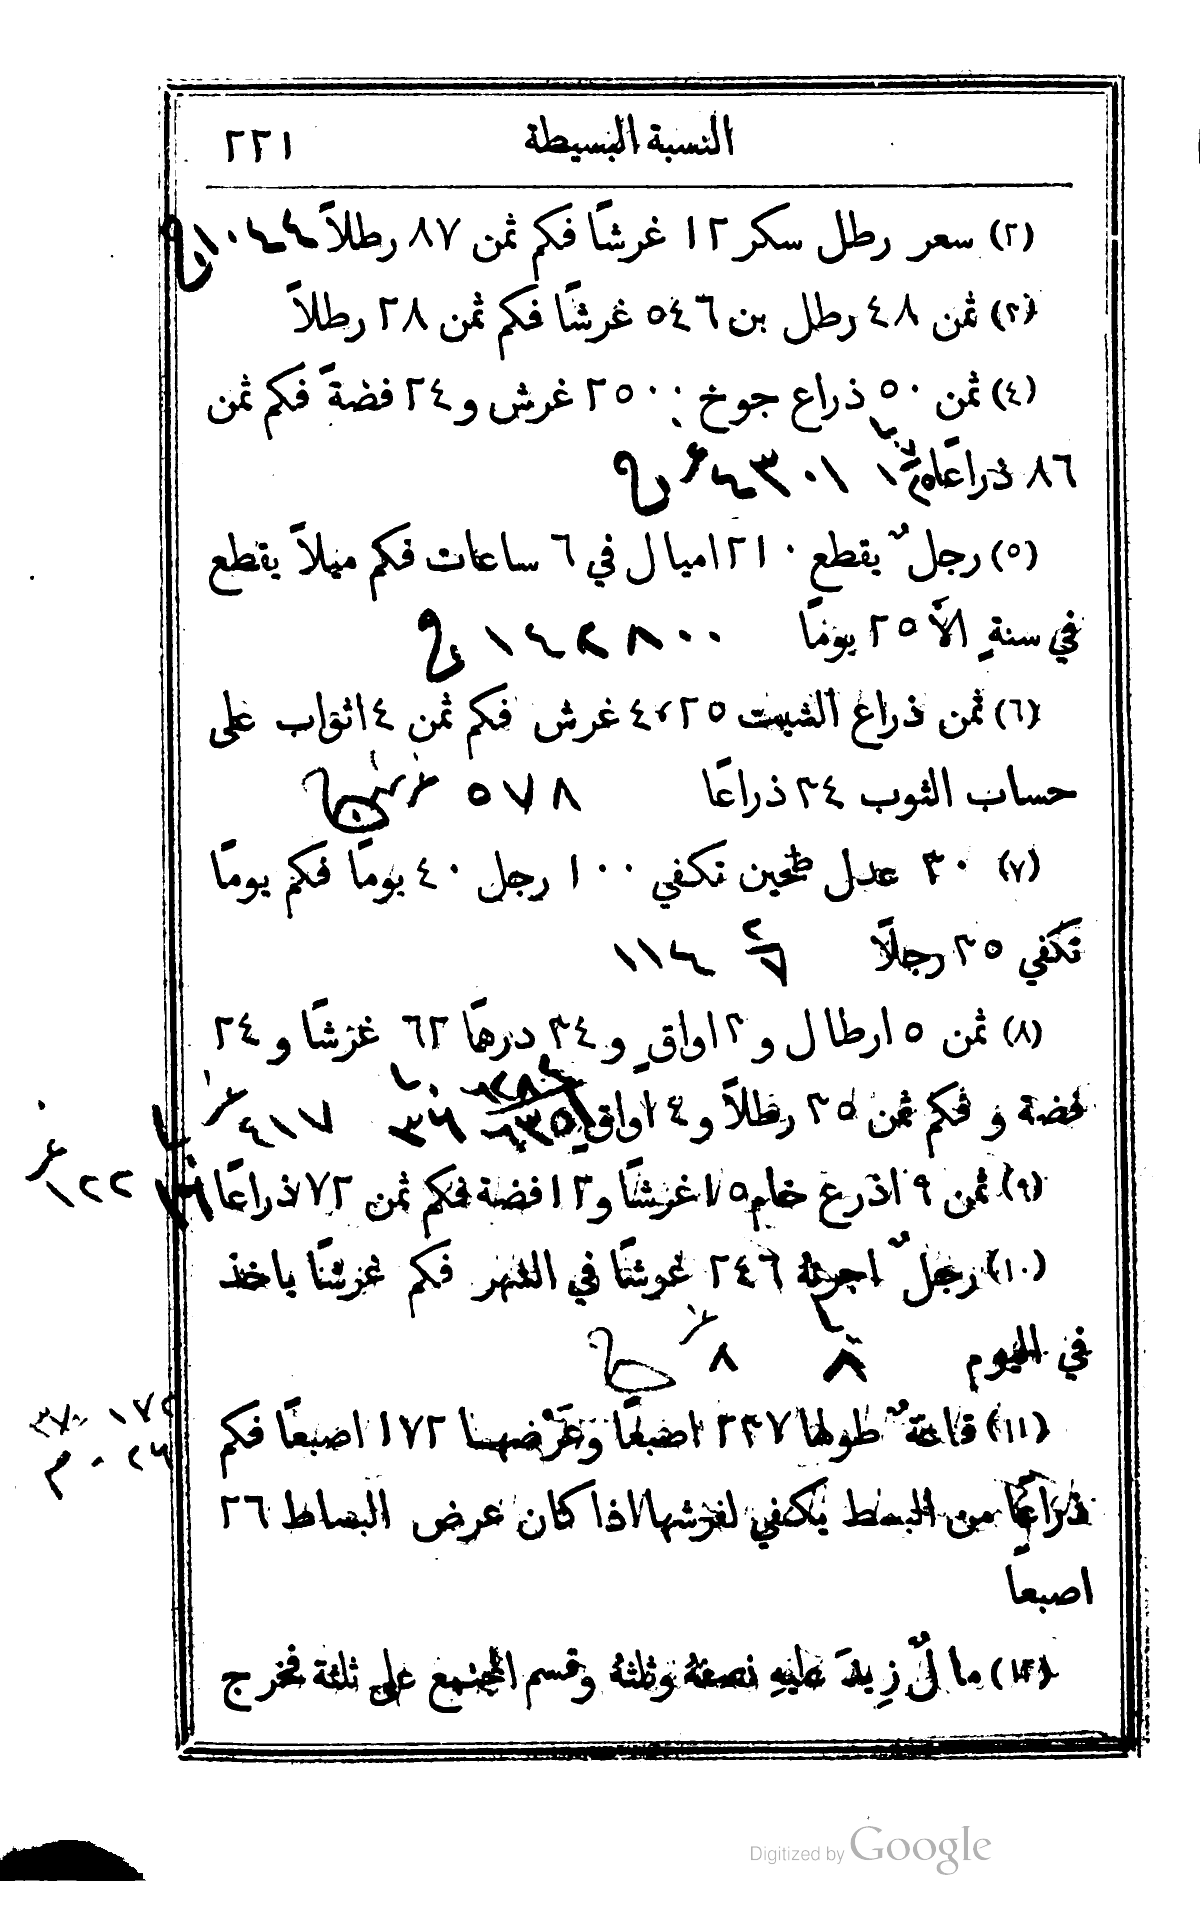 النسبة البسيطة ٢٢١
(٢) سعر رطل سكر ١٢ غرشًا فكم ثمن ٨٧ رطلاً ١٠٤٤
(٣) ثمن ٤٨ رطل بن ٥٤٦ غرشًا فكم ثمن ٢٨ رطلاً
(٤) ثمن ٥٠ ذراع جوخ ٢٥٠٠ غرش و٢٤ فضةً فكم ثمن
٨٦ ذراعًا ٤٣٠١
(٥) رجلٌ يقطع ٢١٠ اميال في ٦ ساعات فكم ميلاً يقطع
في سنةٍ الاَّ ٢٥ يومًا ١٤٢٨٠٠
(٦) ثمن ذراع الشيت ٤،٢٥ غرش فكم ثمن ٤ اثواب على
حساب الثوب ٣٤ ذراعًا ٥٧٨
(٧) ٣٠ عدل طحين تكفي ١٠٠ رجل ٤٠ يومًا فكم يومًا
تكفي ٣٥ رجلاً ١١٤ ٢/٧
(٨) ثمن ٥ ارطال و٣ اواقٍ و٣٤ درهمًا ٦٢ غرشًا و٢٤
فضة و فكم ثمن ٣٥ رطلاً و٤ اواقٍ ٤١٧ ٣٦
(٩) ثمن ٩ اذرع خام ١٥ غرشًا و١٢ فضة فكم ثمن ٧٢ ذراعًا ١٢٢ ١٦
(١٠) رجلٌ اجرتهُ ٢٤٦ غرشًا في الشهر فكم غرشًا ياخذ
في اليوم ٨ ٨
(١١) قاعةٌ طولها ٢٣٧ اصبعًا وعَرْضها ١٧٢ اصبعًا فكم
ذراعًا من البسط يكفي لفرشها اذا كان عرض البساط ٢٦
اصبعًا
(١٢) مالٌ زِيدَ عليهِ نصفهُ وثلثهُ وقسم المجتمع على ثلثة فخرج
Digitized by Google